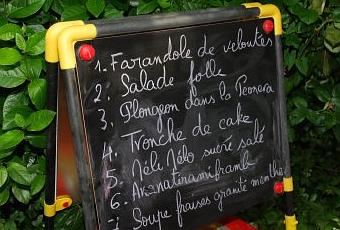 1. Farandole de veloutés
2. Salade folle
3. Plongeon dans la Peonera
4. Tronche de cake
5. Méli Mélo sucré salé
6. Akanatiramiframb
7. Soupe fraises granité menthe